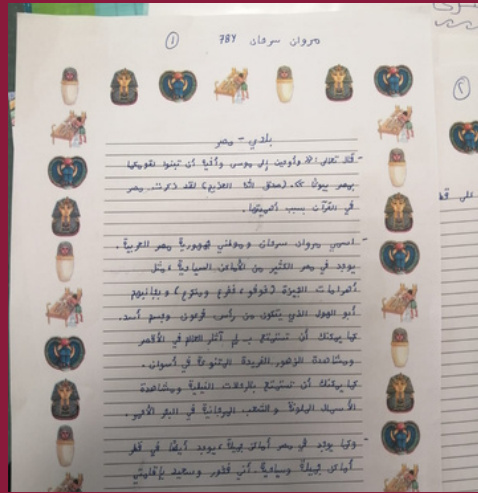 مروان سرحان 7BY
①
بلدي - مصر
- قال تعالى: وأوحينا إلى موسى وأخيه أن تبوءا لقومكما
بمصر بيوتا (صدق الله العظيم) لقد ذكرت مصر
في القرآن بسبب أهميتها.
- اسمي مروان سرحان وموطني جمهورية مصر العربية.
يوجد في مصر الكثير من الأماكن السياحية، مثل
أهرامات الجيزة (خوفو، خفرع ومنقرع) وبجانبهم
أبو الهول الذي يتكون من رأس فرعون وجسم أسد.
كما يمكنك أن تستمتع بـ آثار العالم في الأقصر
ومشاهدة الزهور الفريدة المتنوعة في أسوان.
كما يمكنك أن تستمتع بالرحلات النيلية ومشاهدة
الأسماك الملونة والشعب المرجانية في البحر الأحمر.
- وكما يوجد في مصر أماكن جميلة، يوجد أيضا في قطر
أماكن جميلة وسياحية. أنني فخور وسعيد بإقامتي
②